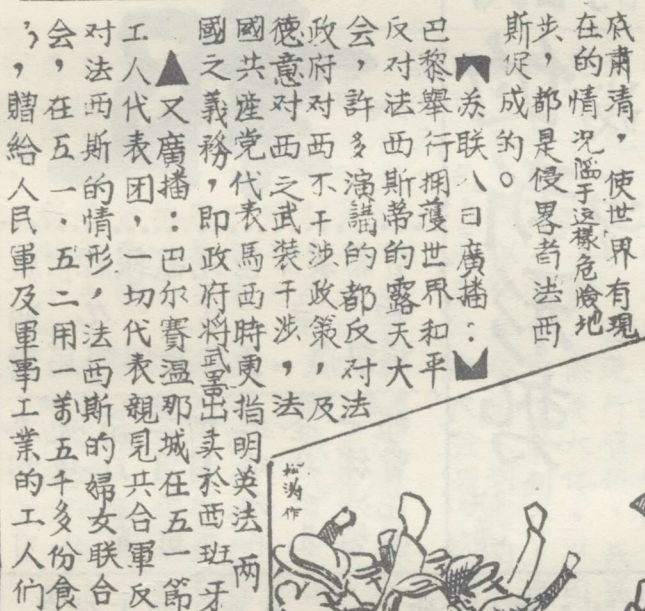 底肃清，使世界有現
在的情况陷于这樣危險地
步，都是侵畧者法西
斯促成的。
苏联八日廣播：
巴黎舉行拥護世界和平
反对法西斯蒂的露天大
会，許多演講的都反对法
政府对西不干涉政策，及
德意对西之武装干涉，法
國共産党代表馬西時更指明英法两
國之義務，即政府将武器出卖於西班牙
▲又廣播：巴尔賽温那城在五一節
工人代表团，一切代表親見共合軍反
对法西斯的情形，法西斯的婦女联合
会，在五一．五二用一萬五千多份食
，贈給人民軍及軍事工業的工人们
松涛作